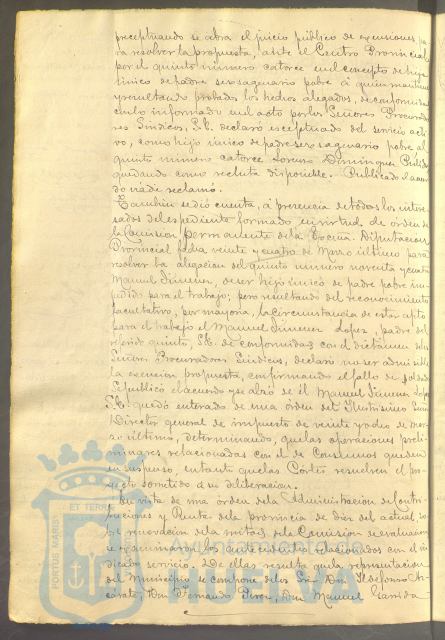 preceptuando se abra el juicio público de exenciones pa-
ra resolver la propuesta, ante el Centro Provincial
por el quinto número catorce en el concepto de hijo
único de padre sexagenario pobre á quien mantiene
y resultando probados los hechos alegados, de conformidad
con lo informado en el acto por los Señores Procurado-
res Síndicos, S.E. declaró exceptuado del servicio acti-
vo, como hijo único de padre sexagenario pobre al
quinto número catorce Lorenzo Dominguez
quedando como recluta disponible. Publicado el acuer-
do nadie reclamó.
Tambien se dió cuenta, á presencia de todos los intere-
sados del espediente formado en virtud de orden de
la Comision permanente de la Excma. Diputacion
Provincial fecha veinte y cuatro de Marzo último para
resolver la alegacion del quinto número noventa y cuatro
Manuel Jimenez, de ser hijo único de padre pobre im-
pedido para el trabajo; pero resultando del reconocimiento
facultativo, por mayoria, la circunstancia de estar apto
para el trabajo el Manuel Jimenez Lopez, padre del
referido quinto, S.E. de conformidad con el dictamen de los
Señores Procuradores Síndicos, declaró no ser admisible
la exencion propuesta, confirmando el fallo de soldado
Se publicó el acuerdo y se alzó de él Manuel Jimenez Lopez
S.E. quedó enterado de una orden del Ilustrísimo Señor
Director general de impuestos de veinte y ocho de Mar-
zo último, determinando, que las operaciones preli-
minares relacionadas con el de Consumos queden
en suspenso, en tanto que las Cortes resuelven el pro-
yecto sometido a su deliberacion.
En vista de una orden de la Administracion de Contri-
buciones y Rentas de la provincia de diez del actual, so-
bre renovacion de la mitad de la Comision de evaluacion
se examinaron los antecedentes relacionados con el in-
dicado servicio. De ellos resulta que la representacion
del Municipio se compone de los Sres. Don Ildefonso
Don Fernando Perez, Don Manuel Garrido
PORTUS MARIS
ET TERRE
HUELVA